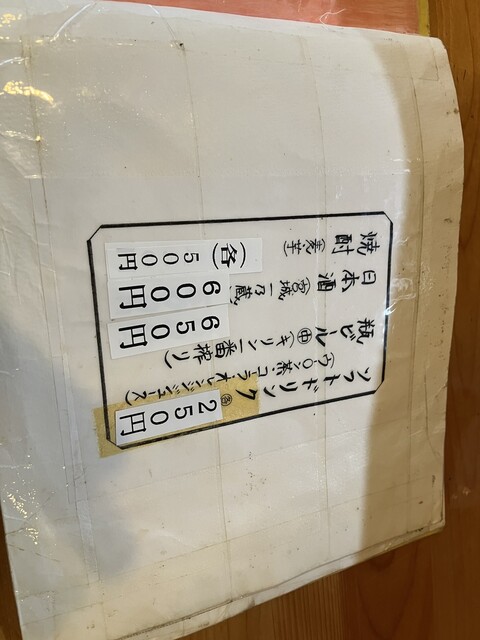 ソフトドリンク ㊅各 250円
(ウーロン茶・コーラ・オレンジジュース)
瓶ビール ㊥(キリン一番搾り) 650円
日本酒(宮城 一乃蔵) 600円
焼酎(麦・芋) (各)500円